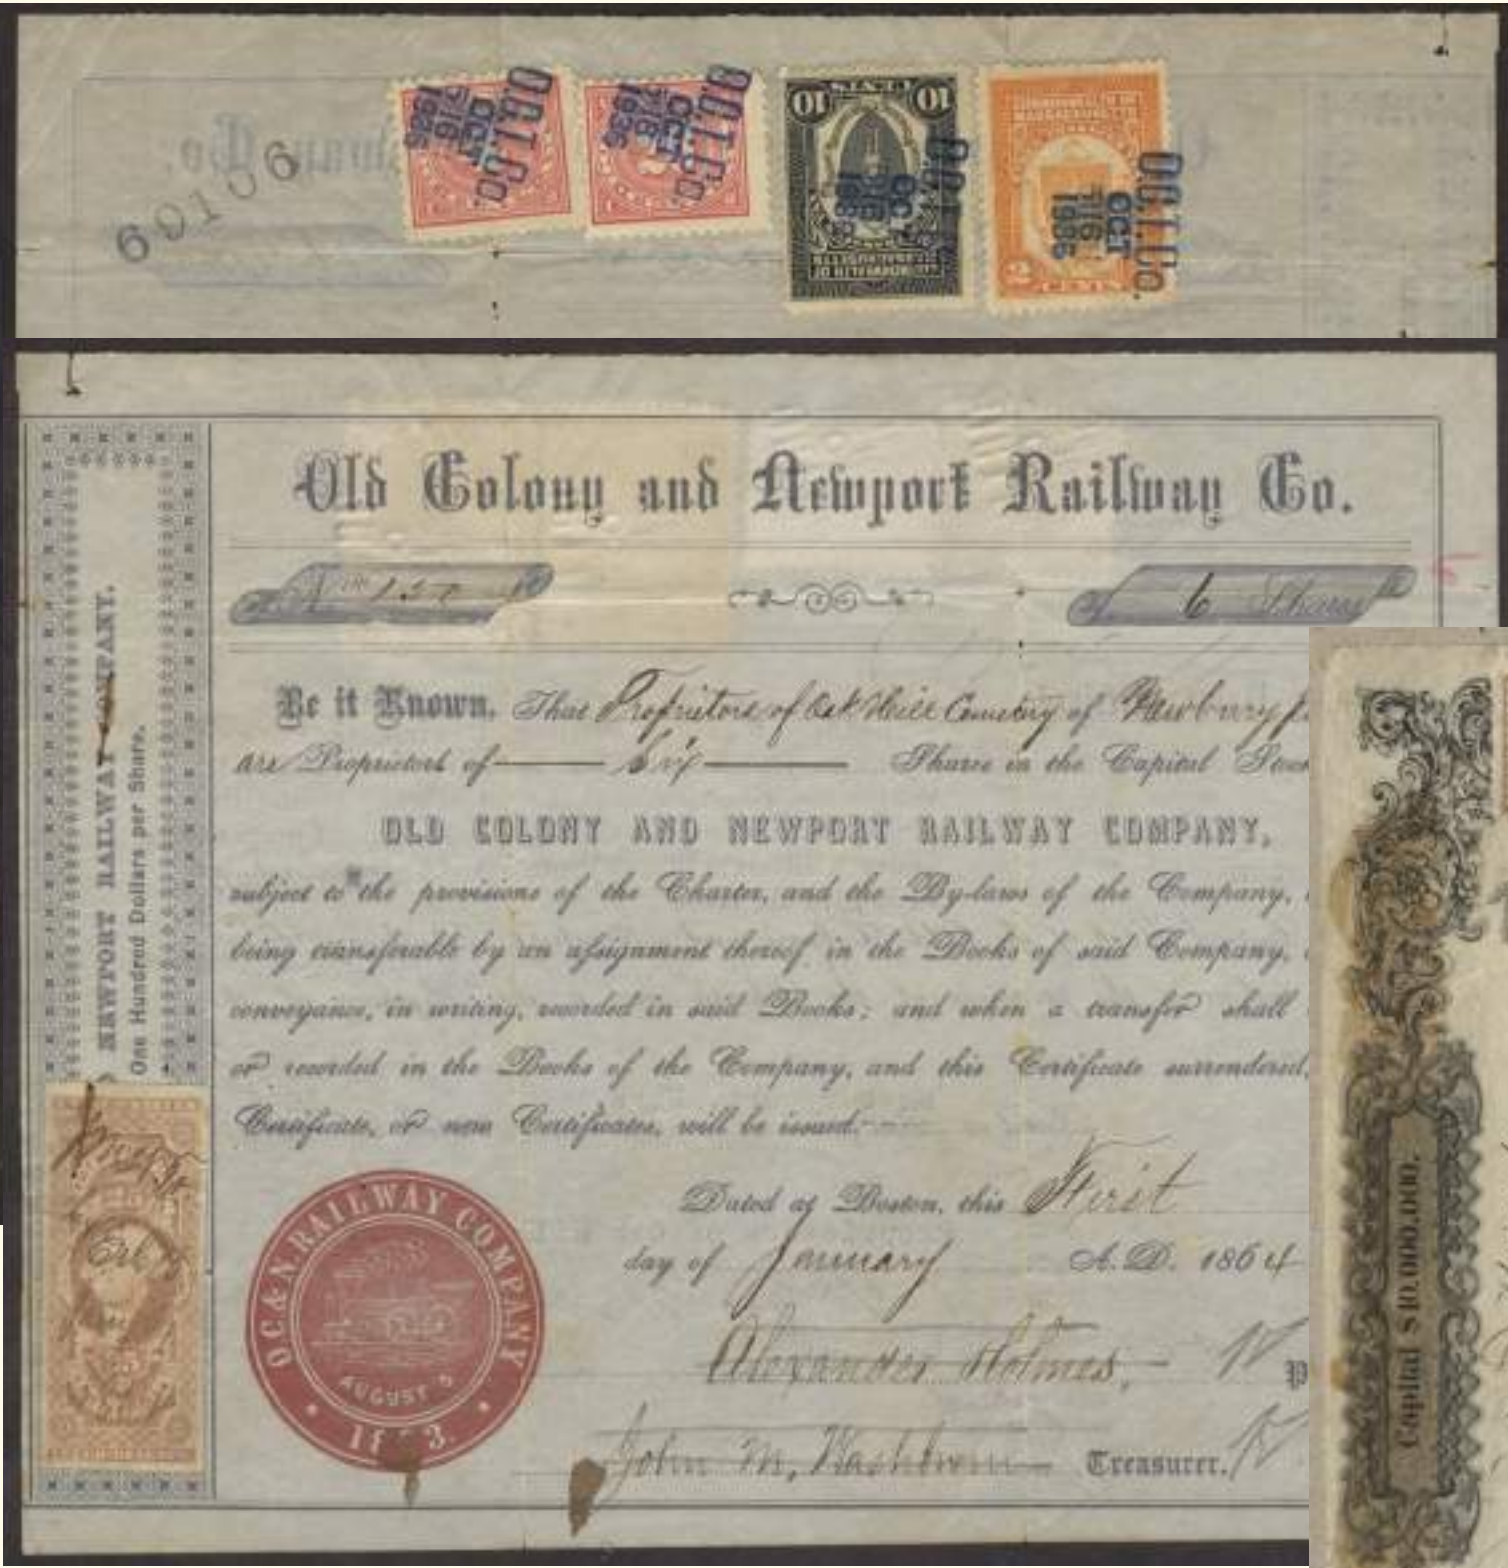 O.C.T.Co.
OCT
O.C.T.Co.
OCT
10 CENTS 10
COMMONWEALTH OF
MASSACHUSETTS
OCT
COMMONWEALTH OF
MASSACHUSETTS
2 CENTS
O.C.T.Co.
OCT
69106
Old Colony and Newport Railway Co.
6 Shares
NEWPORT RAILWAY COMPANY.
One Hundred Dollars per Share.
Be it Known, That Proprietors of Oak Hill Cemetery of Newbury
are Proprietors of Six Shares in the Capital Stock
OLD COLONY AND NEWPORT RAILWAY COMPANY,
subject to the provisions of the Charter, and the By-laws of the Company,
being transferable by an assignment thereof in the Books of said Company,
conveyance, in writing, recorded in said Books; and when a transfer shall
or recorded in the Books of the Company, and this Certificate surrendered,
Certificate, or new Certificates, will be issued.
Dated at Boston, this First
day of January A.D. 1864
Alexander Holmes,
John M. Washburn Treasurer.
O.C. & N. RAILWAY COMPANY
AUGUST 5
Capital $10,000,000.